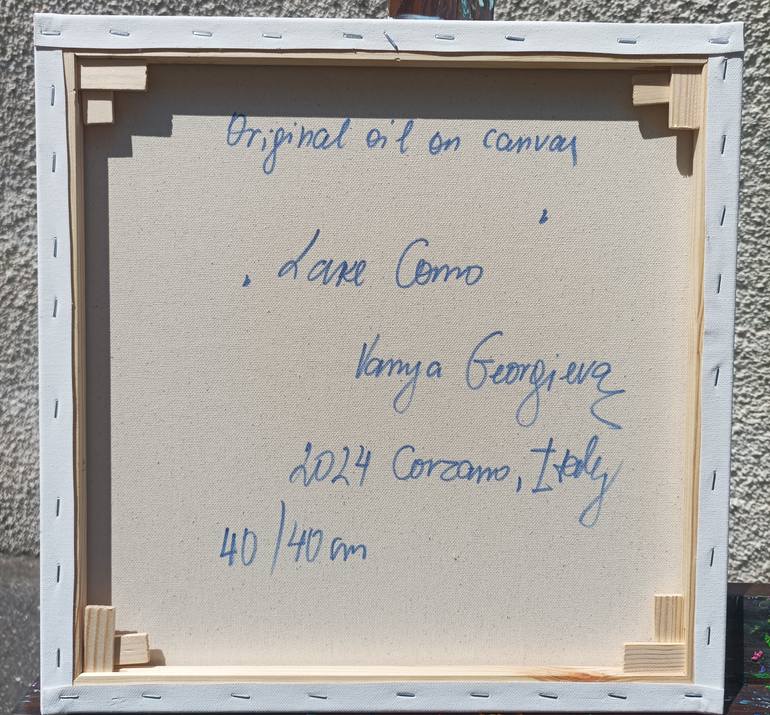 Original oil on canvas
, Lake Como '
Vanya Georgieva
2024 Corzano, Italy
40/40 cm